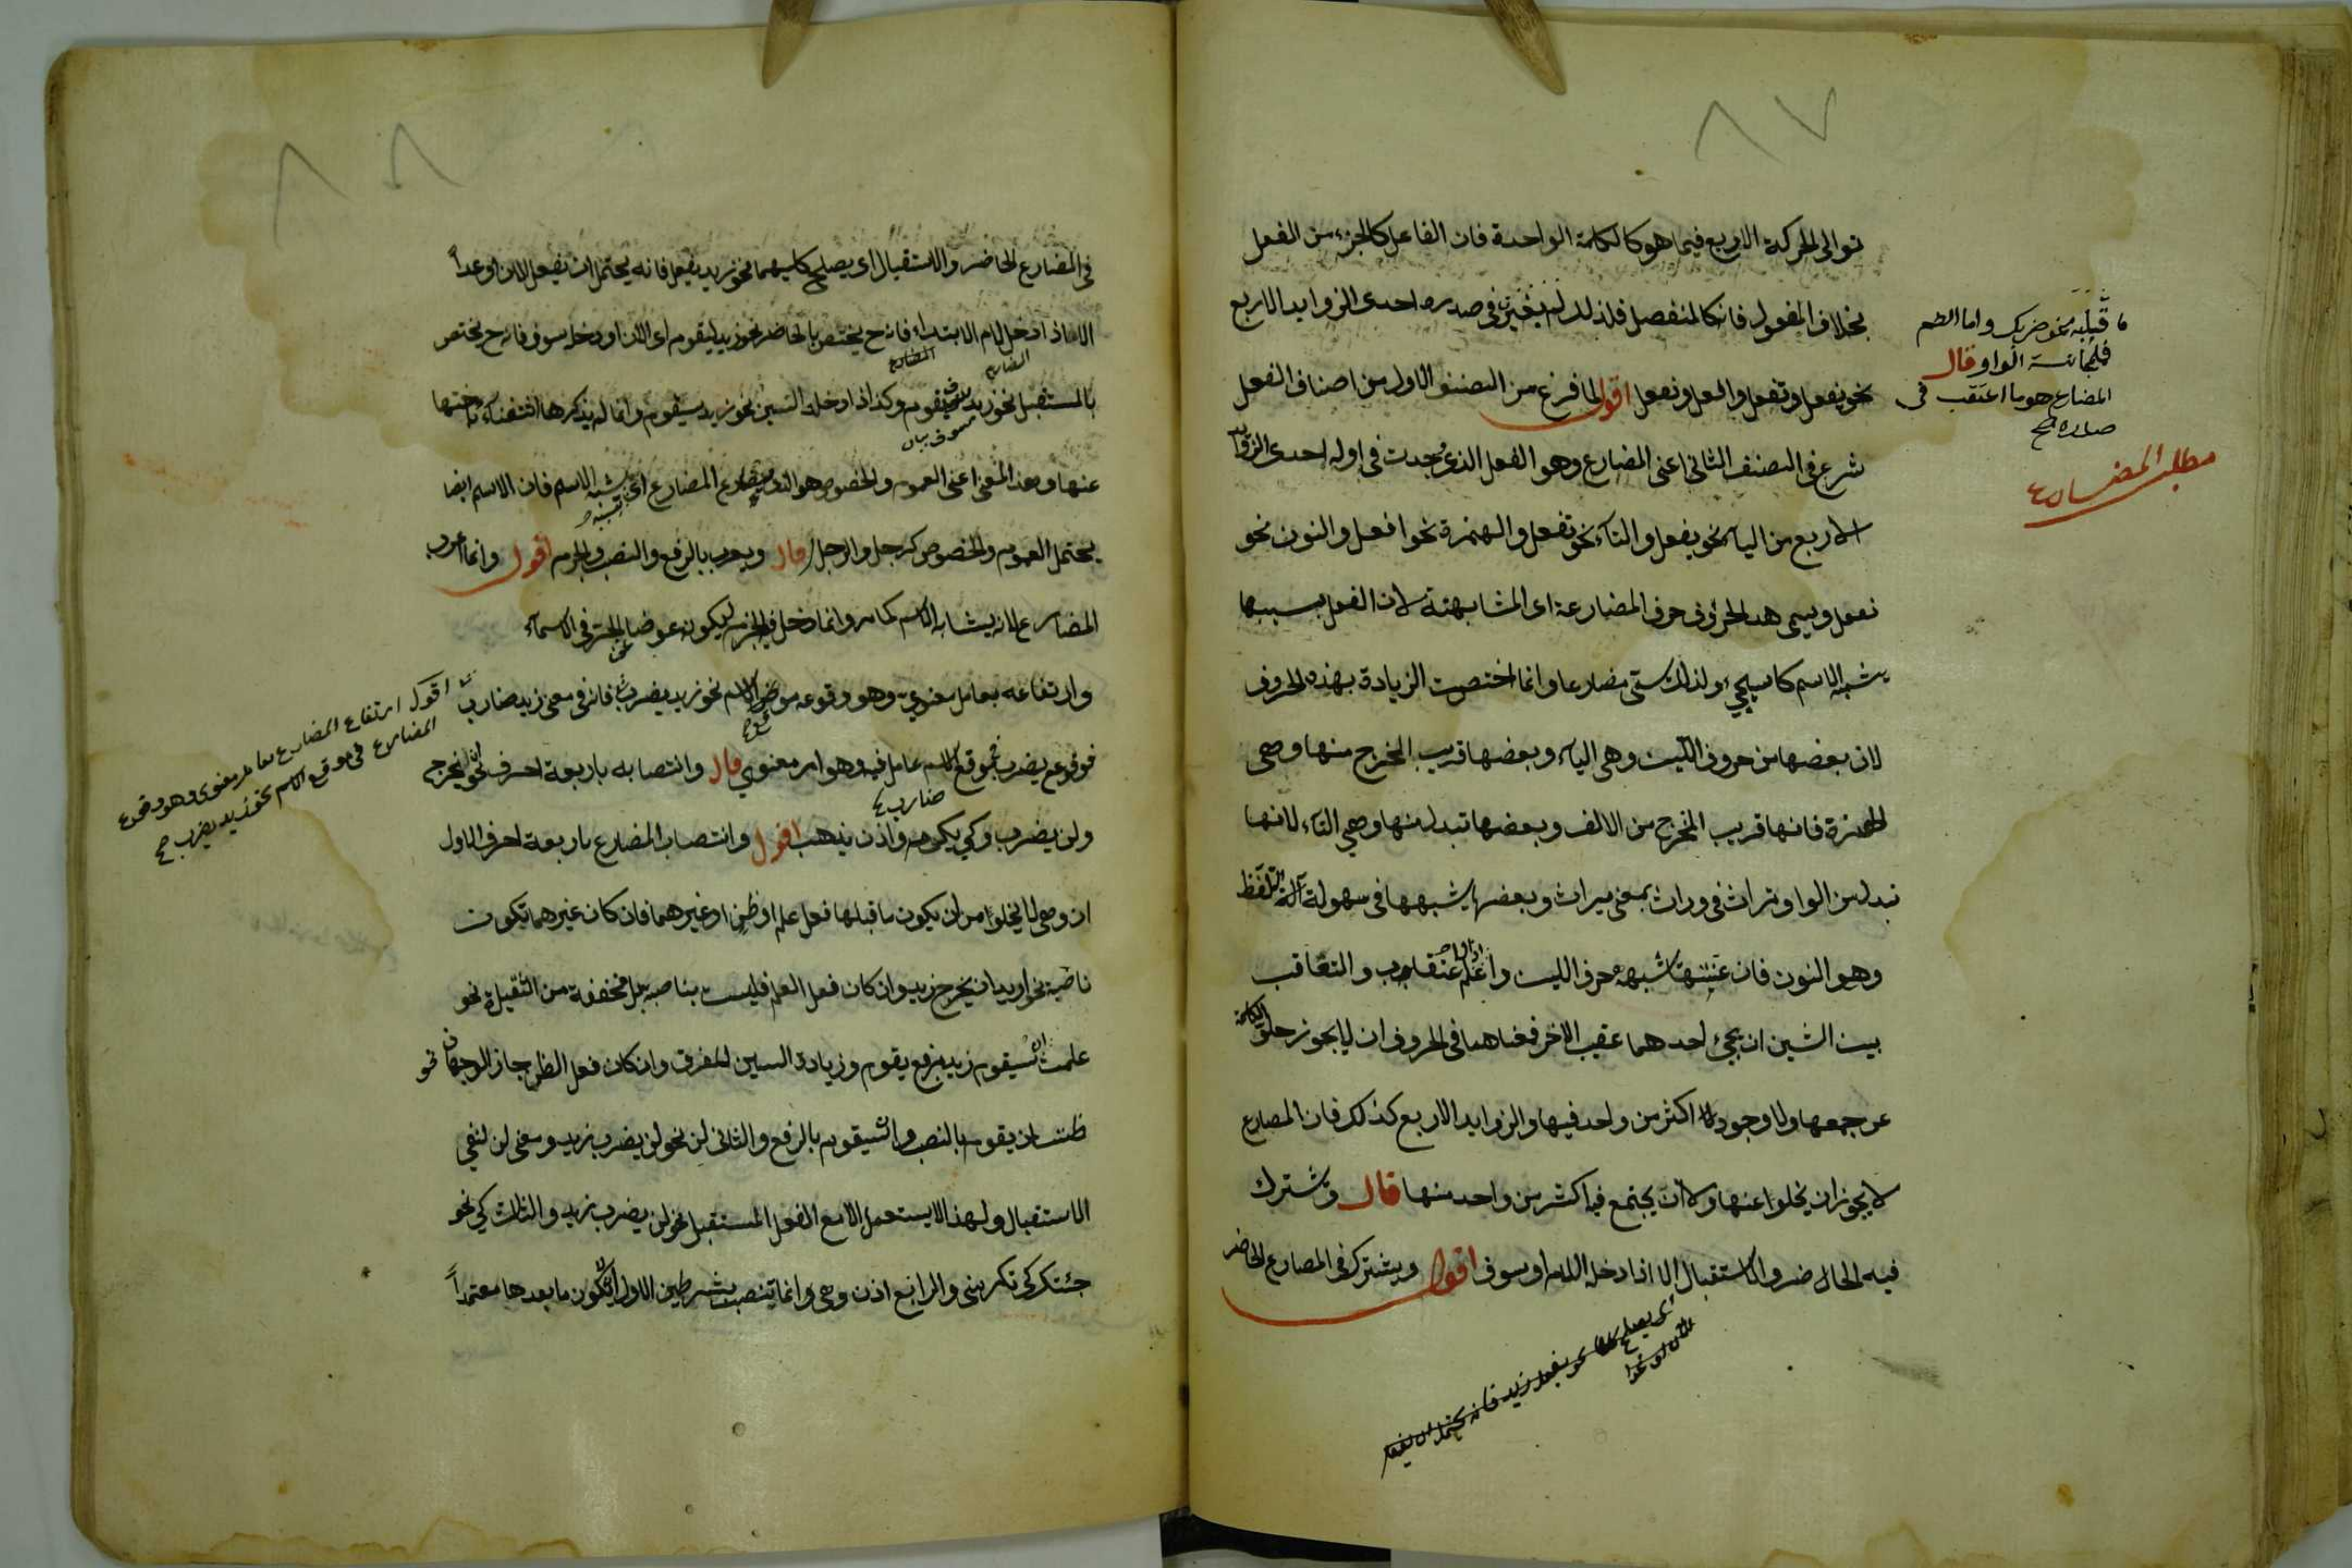 ٨٧
توالى الحركة الاربع فيما هو كالكلمة الواحدة فان الفاعل كالجزء من الفعل
بخلاف المفعول فانه كالمنفصل فلذلك لم يغير في صدره احدى الزوايد الاربع
نحو يفعل وتفعل وافعل ونفعل اقول لما فرغ من الصنف الاول من اصناف الفعل
شرع في الصنف الثاني اعنى المضارع وهو الفعل الذى وجدت في اوله احدى الزوايد
الاربع من الياء نحو يفعل والتاء نحو تفعل والهمزة نحو افعل والنون نحو
نفعل ويسمى هذه الحروف حرف المضارعة اى المشابهة لان الفعل بسببها
يشبه الاسم كما سيجيء ولذلك سمّى مضارعا وانما اختصت الزيادة بهذه الحروف
لان بعضها من حروف اللين وهى الياء وبعضها قريب المخرج منها وهى
الهمزة فانها قريب المخرج من الالف وبعضها تبدل منها وهي التاء لانها
تبدل من الواو تراث في وراث بمعنى ميراث وبعضها يشبهها في سهولة آلة التلفظ
وهو النون فان غنيتها شبهه حرف اللين واعلم والتعاقب
بين الشين ان يجئ احدهما عقيب الاخر فمعناها في الحروف ان لا يجوز خلو الكلمة
عن جمعها ولا وجود اكثر من واحد فيها والزوايد الاربع كذلك فان المضارع
لا يجوز ان يخلوا عنها ولا ان يجتمع فيه اكثر من واحد منها قال وتشترك
فيه الحاضر والاستقبال الا اذا دخله اللام او سوف اقول ويشترك في المضارع الحاضر
ما قبله نحو ضربك واما الضم
فلمجانسة الواو قال
المضارع هو ما اعتقب في
صدره الخ
مطلب المضارع
اى يصلح نحو يفعل زيد فانه يحتمل ان يفعل
الآن او غدا
٨٨
في المضارع الحاضر والاستقبال اى يصلح كليهما نحو زيد يفعل فانه يحتمل ان يفعل الان او غداً
الا اذا دخل لام الابتداء فانه ح يختص بالحاضر نحو زيد ليقوم اى الان او دخله سوف فانه ح يختص
بالمستقبل نحو زيد سوف يقوم وكذا اذا دخله السين نحو زيد سيقوم وانما لم يذكرها اكتفاء باختها
عنها وبهذا المعنى اعنى العموم والخصوص هو المضارع اى يشبه الاسم فان الاسم ايضا
يحتمل العموم والخصوص كرجل والرجل قال ويعرب بالرفع والنصب والجزم اقول وانما اعرب
المضارع لانه يشابه الاسم كما مر وانما دخل فيه الجزم ليكون عوضا عن الجر في الاسماء
وارتفاعه بعامل معنوي وهو وقوعه موقع الاسم نحو زيد يضرب فانه في معنى زيد ضارب
فوقوع يضرب موقع الاسم عامل فيه وهو امر معنوي قال وانتصابه باربعة احرف نحو ان يخرج
ضارب
ولن يضرب وكي يكرم واذن يذهب اقول وانتصاب المضارع باربعة احرف الاول
ان وهى لا يخلوا من ان يكون ما قبلها فعل علم او ظن او غيرهما فان كان غيرهما تكون
ناصبة نحو اريد ان يخرج زيد وان كان فعل العلم فليست بناصبه بل مخففة من الثقيلة نحو
علمت ان سيقوم زيد برفع يقوم وزيادة السين للفرق وان كان فعل الظن جاز الوجهان نحو
ظننت ان يقوم بالنصب وان سيقوم بالرفع والثاني لن نحو لن يضرب زيد ومعنى لن لنفي
الاستقبال ولهذا لا يستعمل الا مع الفعل المستقبل نحو لن يضرب زيد والثالث كي نحو
جئتك كى تكرمني والرابع اذن وهى وانما تنصب بشرطين الاول ان يكون ما بعدها معتمداً
اقول ارتفاع المضارع بعامل معنوى وهو وقوع
المضارع في موقع الاسم نحو زيد يضرب